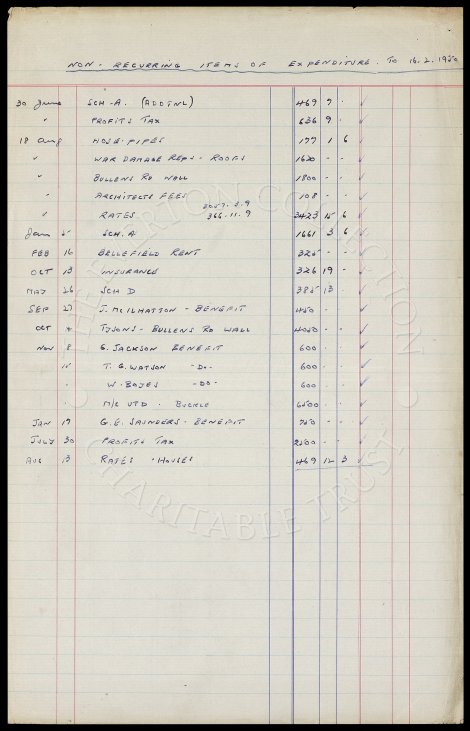 NON-RECURRING ITEMS OF EXPENDITURE. TO 16.2.1950
30 June SCH-A. (ADDTNL) 469 7 .
" PROFITS TAX 636 9 .
18 Aug HOSE-PIPES 177 1 6
" WAR DAMAGE REPS - ROOFS 1620 - -
" BULLENS RD WALL 1800 - -
" ARCHITECTS FEES 108 - -
" RATES 3057.3.9 366.11.9 3423 15 6
Jan 5 SCH.A 1661 3 6
FEB 16 BELLEFIELD RENT 325 - -
OCT 13 INSURANCE 326 19 -
MAY 26 SCH D 385 13 .
SEP 27 J. McILHATTON - BENEFIT 450 - -
OCT TYSONS - BULLENS RD WALL 4050 - -
NOV 8 G. JACKSON BENEFIT 600 . .
" T.G. WATSON -DO- 600 . .
" W. BOYES -DO- 600 . .
" M/C UTD - BUCKLE 6500 . .
JAN 17 G.E. SAUNDERS - BENEFIT 750 - -
JULY 30 PROFITS TAX 2500 - -
AUG 13 RATES - HOUSES 469 12 3
THE EVERTON COLLECTION
CHARITABLE TRUST